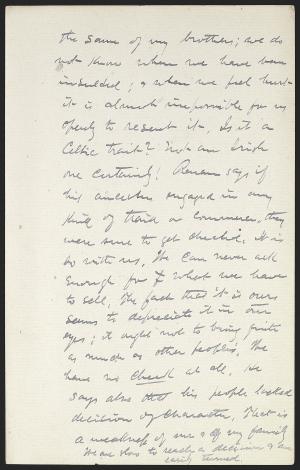 the same of my brothers; we do
not know when we have been
insulted; & when we feel hurt
it is almost impossible for us
openly to resent it. Is it a
Celtic trait? Not an Irish
one certainly! Renan says if
his ancestors engaged in any
kind of trade or commerce, they
were sure to get cheated. It is
so with us, We can never ask
enough for what we have
to sell. The fact that it is ours
seems to depreciate it in our
eyes; it ought not to bring quite
as much as other people's. We
have no cheek at all. He
says also that his people lacked
decision of character. That is
a weakness of me & of my family
We are slow to reach a decision & are
easily turned.